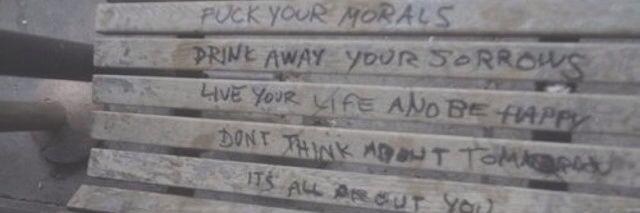 FUCK YOUR MORALS
DRINK AWAY YOUR SORROWS
LIVE YOUR LIFE AND BE HAPPY
DONT THINK ABOUT TOMORROW
ITS ALL ABOUT YOU